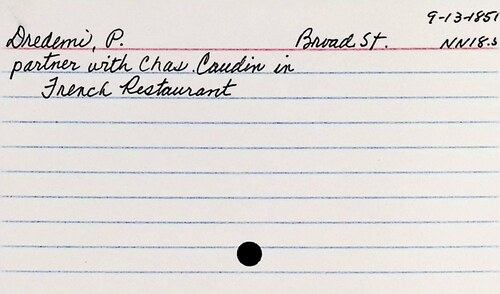 9-13-1851
Dredemi, P. Broad St. NN18.3
partner with Chas. Caudin in
French Restaurant